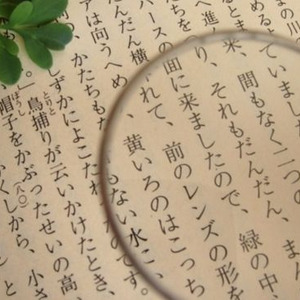 まの川
めるよう
るとま
へ進 来、間もなく二つの
り、それもだんだん、まん
パースの 面に来ましたので、緑の中
だんだん横 れて、前のレンズの形を
アは向うへめ 黄いろのはこっち
、かたちも もない水に
しずかによこた です。
。」鳥捕りが云いかけたとき、
帽子をかぶったせいの高
くしから、小さ